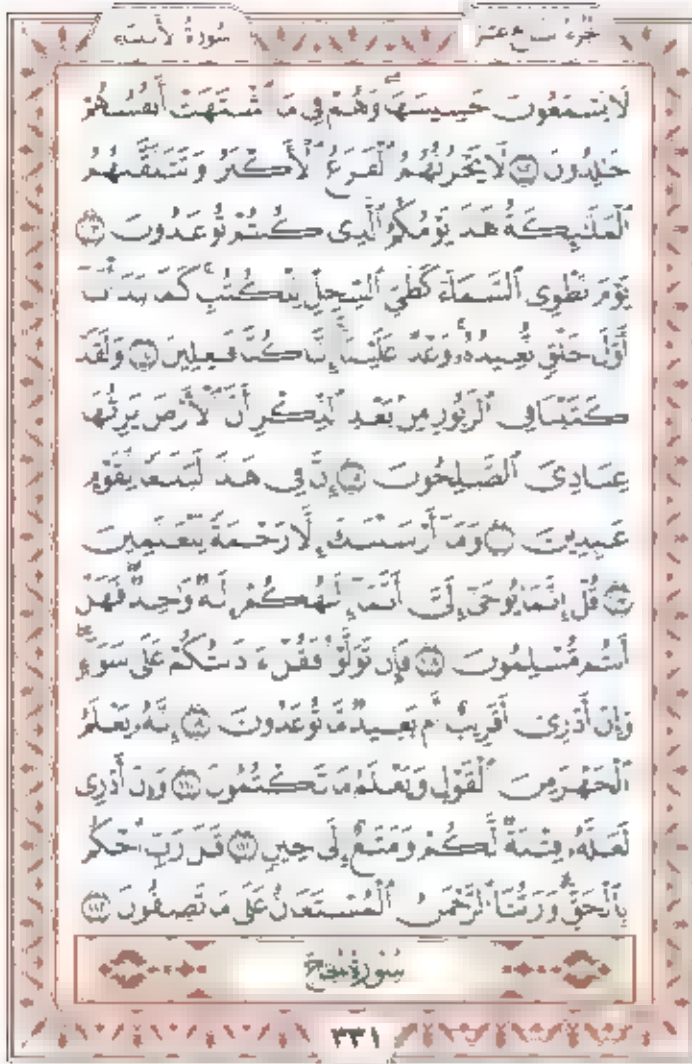 سورة الأنبياء
الجزء السابع عشر
لَا يَسْمَعُونَ حَسِيسَهَا وَهُمْ فِي مَا اشْتَهَتْ أَنفُسُهُمْ
خَالِدُونَ ١٠٢ لَا يَحْزُنُهُمُ الْفَزَعُ الْأَكْبَرُ وَتَتَلَقَّاهُمُ
الْمَلَائِكَةُ هَذَا يَوْمُكُمُ الَّذِي كُنتُمْ تُوعَدُونَ ١٠٣
يَوْمَ نَطْوِي السَّمَاءَ كَطَيِّ السِّجِلِّ لِلْكُتُبِ كَمَا بَدَأْنَا
أَوَّلَ خَلْقٍ نُّعِيدُهُ وَعْدًا عَلَيْنَا إِنَّا كُنَّا فَاعِلِينَ ١٠٤ وَلَقَدْ
كَتَبْنَا فِي الزَّبُورِ مِن بَعْدِ الذِّكْرِ أَنَّ الْأَرْضَ يَرِثُهَا
عِبَادِيَ الصَّالِحُونَ ١٠٥ إِنَّ فِي هَذَا لَبَلَاغًا لِّقَوْمٍ
عَابِدِينَ ١٠٦ وَمَا أَرْسَلْنَاكَ إِلَّا رَحْمَةً لِّلْعَالَمِينَ
١٠٧ قُلْ إِنَّمَا يُوحَى إِلَيَّ أَنَّمَا إِلَهُكُمْ إِلَهٌ وَاحِدٌ فَهَلْ
أَنتُم مُّسْلِمُونَ ١٠٨ فَإِن تَوَلَّوْا فَقُلْ ءَاذَنتُكُمْ عَلَى سَوَاءٍ
وَإِنْ أَدْرِي أَقَرِيبٌ أَم بَعِيدٌ مَّا تُوعَدُونَ ١٠٩ إِنَّهُ يَعْلَمُ
الْجَهْرَ مِنَ الْقَوْلِ وَيَعْلَمُ مَا تَكْتُمُونَ ١١٠ وَإِنْ أَدْرِي
لَعَلَّهُ فِتْنَةٌ لَّكُمْ وَمَتَاعٌ إِلَى حِينٍ ١١١ قَالَ رَبِّ احْكُم
بِالْحَقِّ وَرَبُّنَا الرَّحْمَنُ الْمُسْتَعَانُ عَلَى مَا تَصِفُونَ ١١٢
سورة الحج
٣٣١